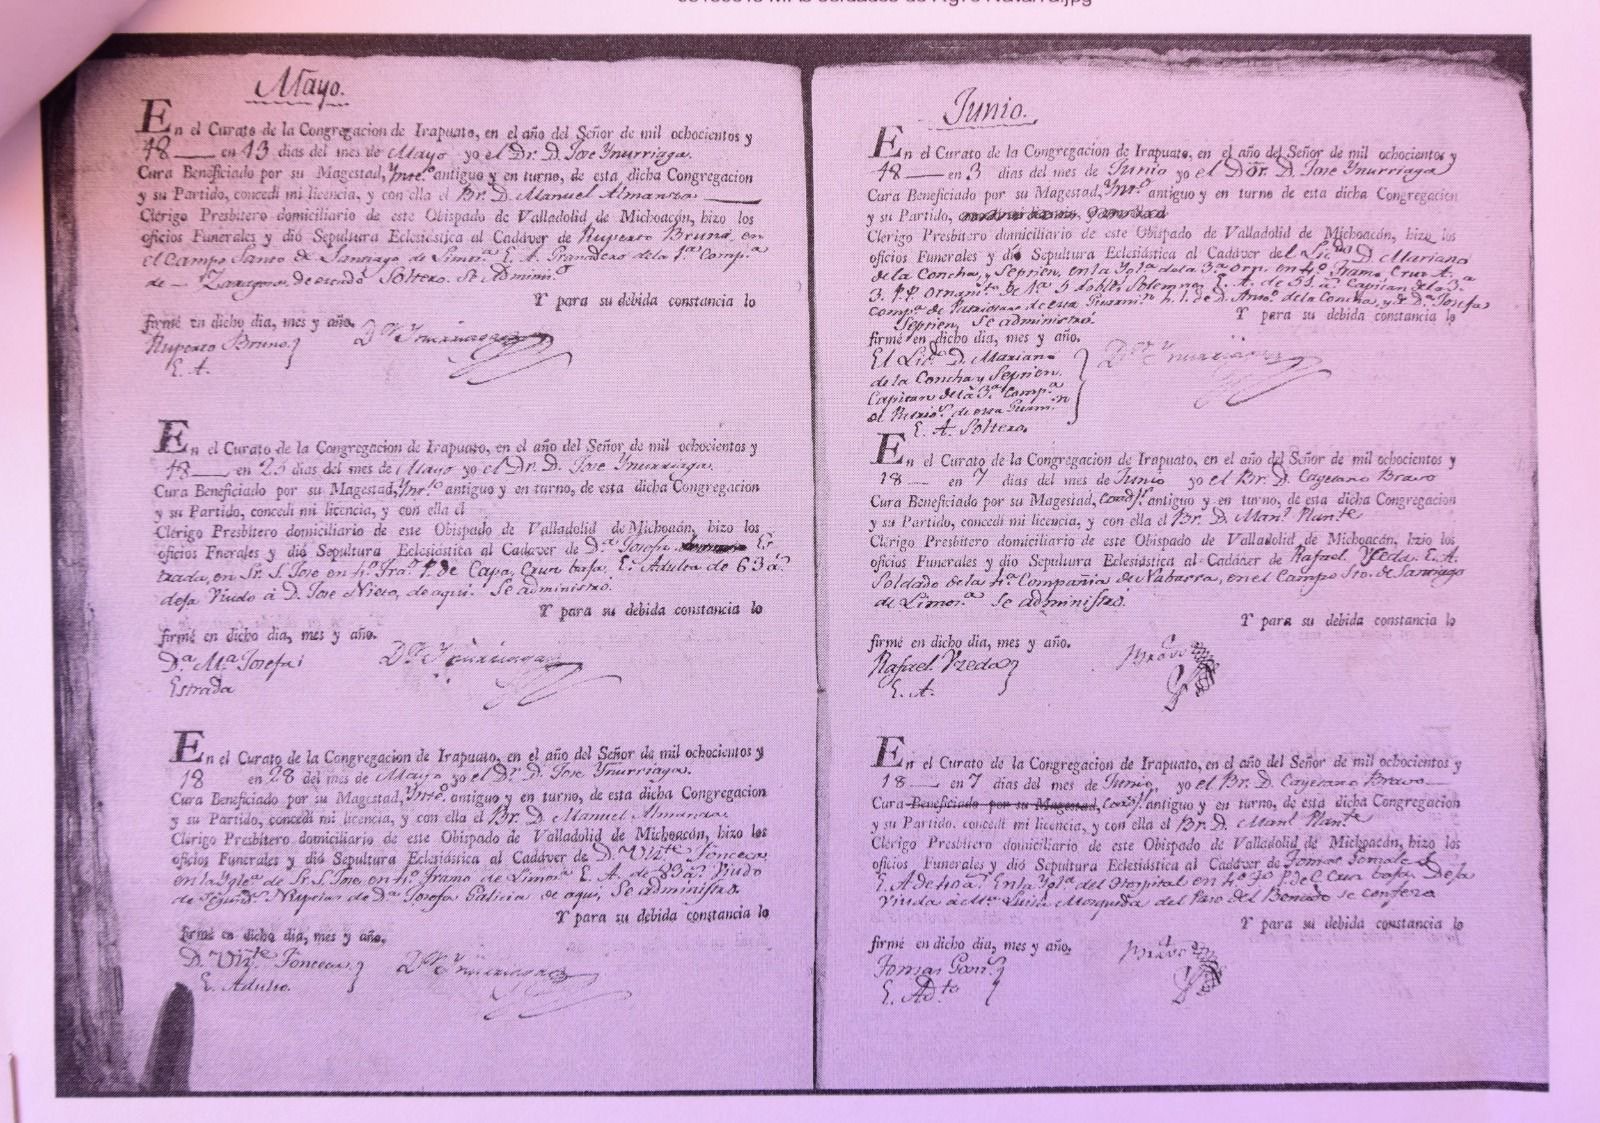 Mayo.
En el Curato de la Congregacion de Irapuato, en el año del Señor de mil ochocientos y
18 en 13 dias del mes de Mayo yo el Dr. D. Jose Ynurriaga.
Cura Beneficiado por su Magestad, Ynto. antiguo y en turno, de esta dicha Congregacion
y su Partido, concedi mi licencia, y con ella el Br. D. Manuel Almanza
Clerigo Presbitero domiciliario de este Obispado de Valladolid de Michoacán, hizo los
oficios Funerales y dió Sepultura Eclesiástica al Cadáver de Ruperto Bruno, en
el Campo Santo de Santiago de Limna. E. A. Granadero de la 1.ª Comp.ª
de Zaragoza, de estado Soltero. Se Adminis
Y para su debida constancia lo
firmé en dicho dia, mes y año. Dr. Ynurriaga
Ruperto Bruno
E. A.
En el Curato de la Congregacion de Irapuato, en el año del Señor de mil ochocientos y
18 en 25 dias del mes de Mayo yo el Dr. D. Jose Ynurriaga.
Cura Beneficiado por su Magestad, Ynto. antiguo y en turno, de esta dicha Congregacion
y su Partido, concedi mi licencia, y con ella el
Clerigo Presbitero domiciliario de este Obispado de Valladolid de Michoacán, hizo los
oficios Fnerales y dió Sepultura Eclesiástica al Cadaver de D.ª Josefa Es
trada, en Sr. S. Jose en 4.º Tra.º P. de Capa, Cruz baja. E. Adulta de 63 a.
deja Viudo á D. Jose Nieto, de aqui. Se administró.
Y para su debida constancia lo
firmé en dicho dia, mes y año.
D.ª M.ª Josefa Dr. Ynurriaga
Estrada
En el Curato de la Congregacion de Irapuato, en el año del Señor de mil ochocientos y
18 en 28 del mes de Mayo yo el Dr. D. Jose Ynurriaga.
Cura Beneficiado por su Magestad, Ynto. antiguo y en turno, de esta dicha Congregacion
y su Partido, concedi mi licencia, y con ella el Br. D. Manuel Almanza
Clerigo Presbitero domiciliario de este Obispado de Valladolid de Michoacán, hizo los
oficios Funerales y dió Sepultura Eclesiástica al Cadáver de D. Vizte. Fonceca
en la Ygla. de Sr. S. Jose, en 4.º tramo de Limna. E. A. de 83 a. Viudo
de segund. Nupcias de D.ª Josefa Galicia de aqui, Se administró
Y para su debida constancia lo
firmé en dicho dia, mes y año.
D. Vizte. Fonceca Dr. Ynurriaga
E. Adulto.
Junio.
En el Curato de la Congregacion de Irapuato, en el año del Señor de mil ochocientos y
18 en 3 dias del mes de Junio yo el Dor. D. Jose Ynurriaga
Cura Beneficiado por su Magestad, Ynto. antiguo y en turno de esta dicha Congregacion
y su Partido,
Clerigo Presbitero domiciliario de este Obispado de Valladolid de Michoacán, hizo los
oficios Funerales y dió Sepultura Eclesiástica al Cadáver del Licdo. D. Mariano
de la Concha, y Septien, en la Ygla. de la 3.ª orn. en 4.º tramo, Cruz A.
3. PP. Ornam. de 1.ª 5 dobles Solemne, E. A. de 51 a. Capitan de la 3.ª
Comp.ª de Patriotas de esta h. l. de D. Anto. de la Concha, y de D.ª Josefa
Septien, Se administró. Y para su debida constancia lo
firmé en dicho dia, mes y año.
El Licdo. D. Mariano Dor. Ynurriaga
de la Concha y Septien.
Capitan de la 3.ª Comp.ª
de esta
E. A. Soltero.
En el Curato de la Congregacion de Irapuato, en el año del Señor de mil ochocientos y
18 en 7 dias del mes de Junio yo el Br. D. Cayetano Bravo
Cura Beneficiado por su Magestad, antiguo y en turno, de esta dicha Congregacion
y su Partido, concedi mi licencia, y con ella el Br. D. Manl.
Clerigo Presbitero domiciliario de este Obispado de Valladolid de Michoacán, hizo los
oficios Funerales y dió Sepultura Eclesiástica al Cadáver de Rafael Uzeda. E. A.
Soldado de la 4.ª Compañia de Nabarra, en el Campo Sto. de Santiago
de Limna. Se administró.
Y para su debida constancia lo
firmé en dicho dia, mes y año.
Rafael Uzeda Bravo
E. A.
En el Curato de la Congregacion de Irapuato, en el año del Señor de mil ochocientos y
18 en 7 dias del mes de Junio, yo el Br. D. Cayetano Bravo
Cura Beneficiado por su Magestad, antiguo y en turno, de esta dicha Congregacion
y su Partido, concedi mi licencia, y con ella el Br. D. Manl.
Clerigo Presbitero domiciliario de este Obispado de Valladolid de Michoacán, hizo los
oficios Funerales y dió Sepultura Eclesiástica al Cadáver de Tomas Gonzales
E. A. de 40 a. En la Ygla. del Hospital en 4.º P. de C. Cruz baja Deja
Viuda á M.ª Luisa Mosqueda del Paso del Benado se confesó
Y para su debida constancia lo
firmé en dicho dia, mes y año. Bravo
Tomas Gonz.
E. Adto.